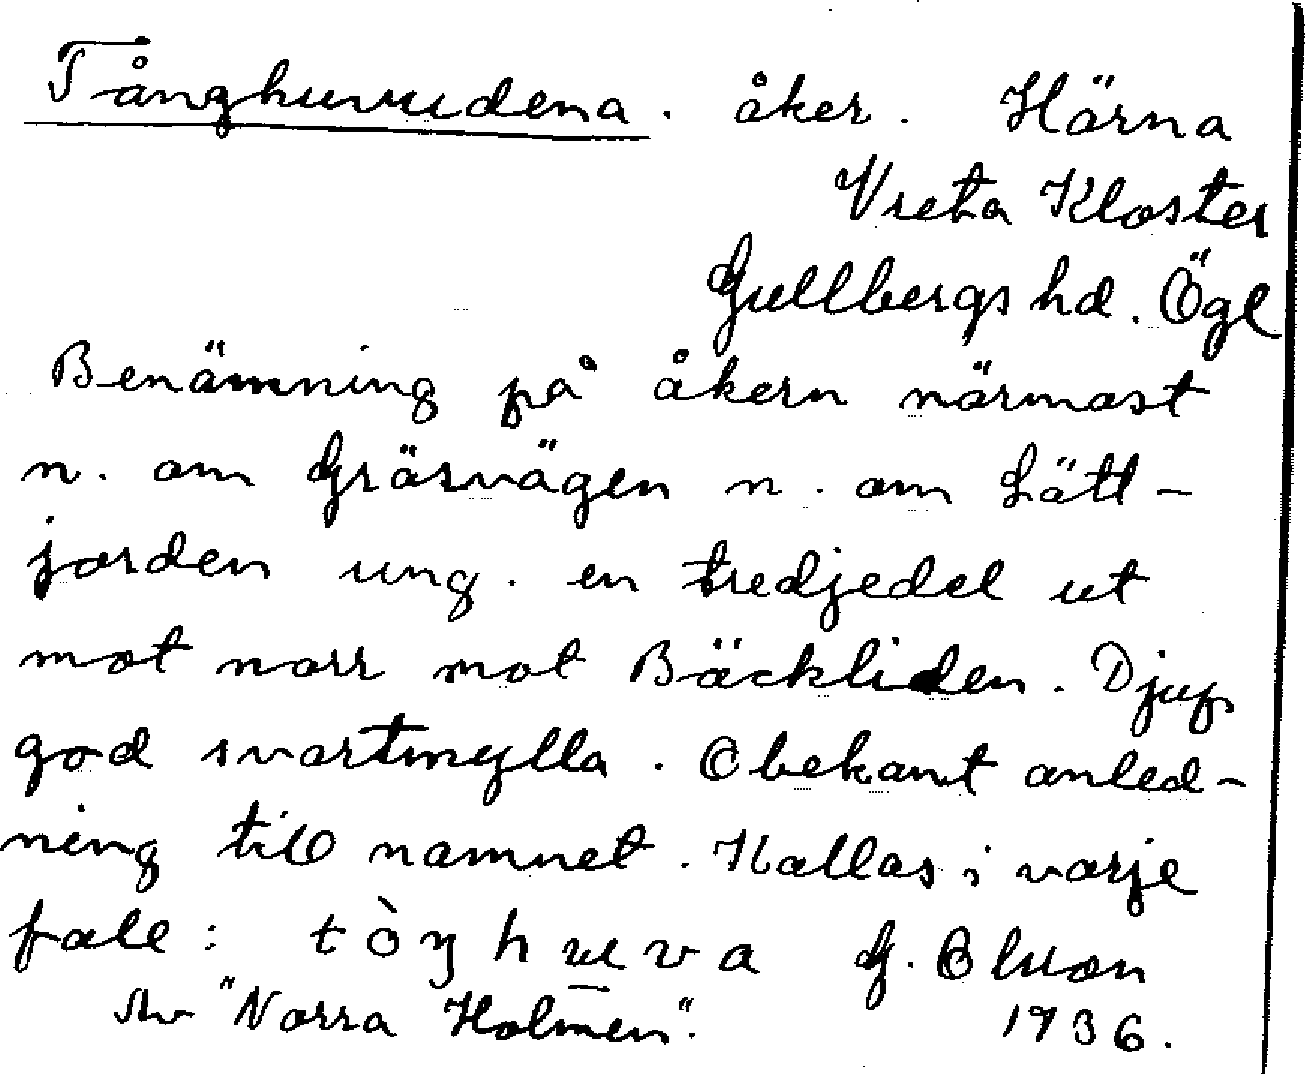 Tånghuvudena. åker. Härna
Vreta Kloster
Gullbergs hd. Ögl
Benämning på åkern närmast
n. om Gräsvägen n. om Lätt-
jorden ung. en tredjedel ut
mot norr mot Bäckliden. Djup
god svartmylla. Obekant anled-
ning till namnet. Kallas i varje
fall: tòŋhuva G. Olson
"Norra Holmen". 1936.